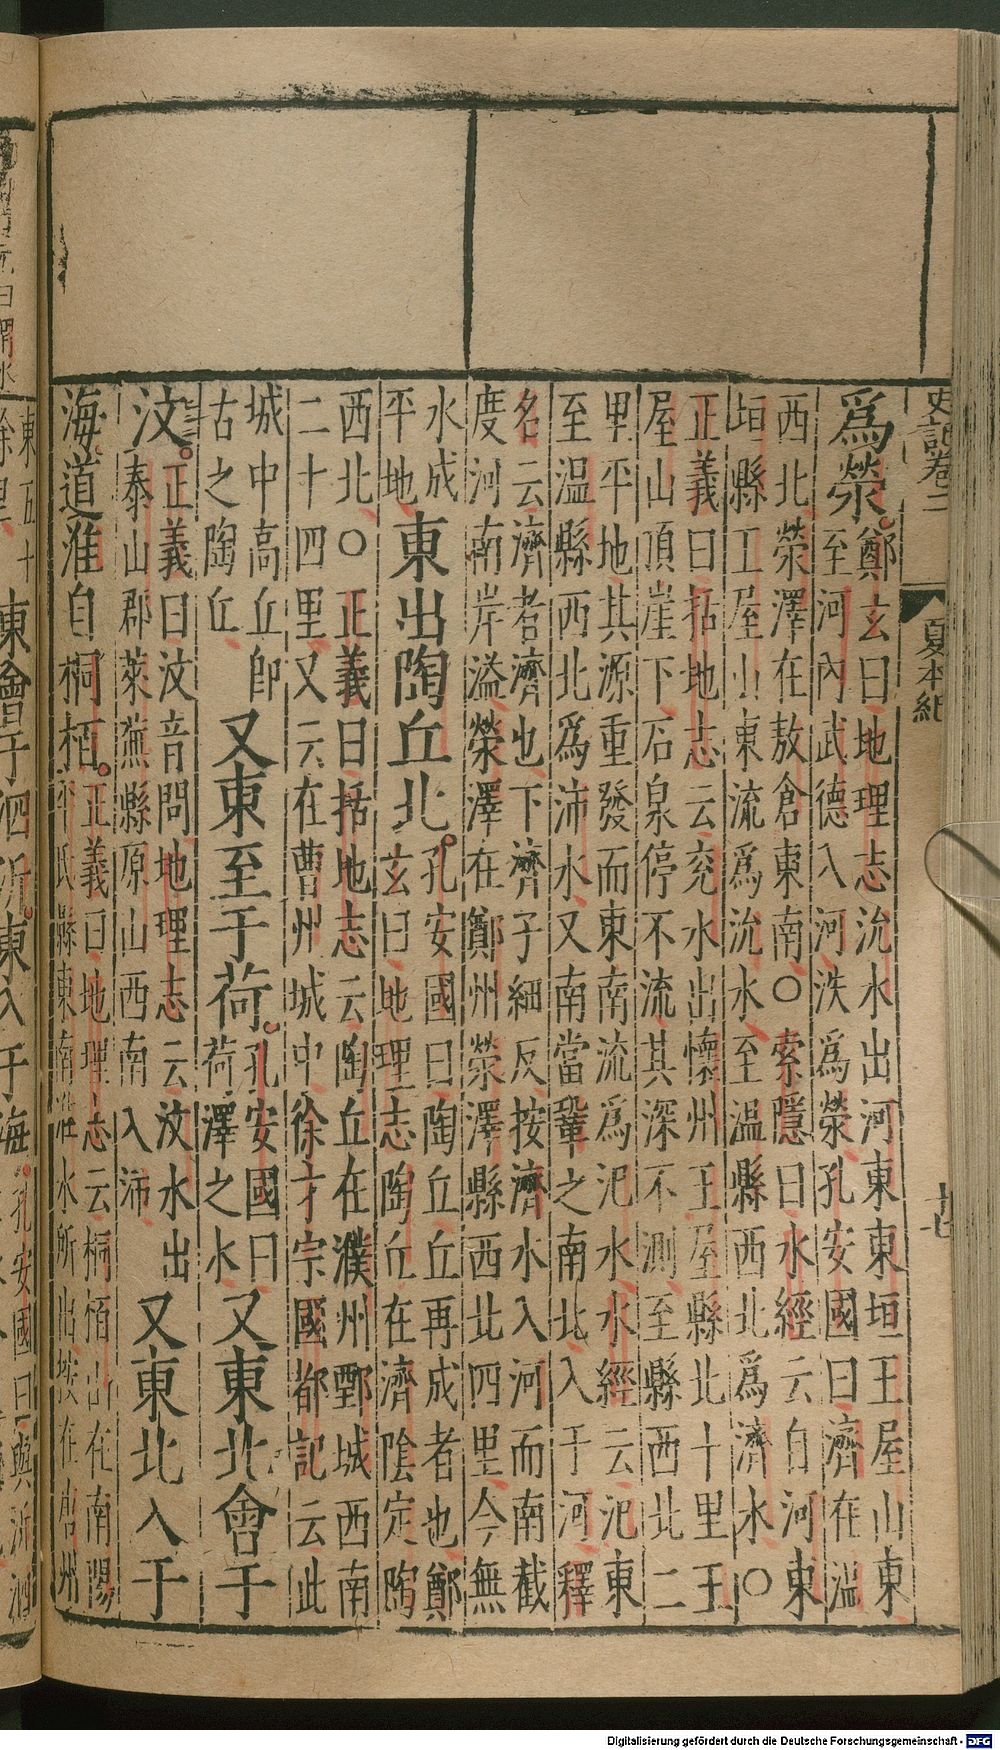 史記卷二　夏本紀
爲滎。
鄭玄曰地理志沇水出河東東垣王屋山東
至河內武德入河泆爲滎孔安國曰濟在溫
西北滎澤在敖倉東南○索隱曰水經云自河東
垣縣王屋山東流爲沇水至溫縣西北爲濟水○
正義曰括地志云兖水出懷州王屋縣北十里王
屋山頂崖下石泉停不流其深不測至縣西北二
里平地其源重發而東南流爲汜水水經云汜東
至溫縣西北爲沛水又南當鞏之南北入于河釋
名云濟者濟也下濟子細反按濟水入河而南截
度河南岸溢滎澤在鄭州滎澤縣西北四里今無
水成
平地
東出陶丘北。
孔安國曰陶丘丘再成者也鄭
玄曰地理志陶丘在濟陰定陶
西北○正義曰括地志云陶丘在濮州鄄城西南
二十四里又云在曹州城中徐才宗國都記云此
城中高丘卽
古之陶丘
又東至于荷。
孔安國曰
荷澤之水
又東北會于
汶。
正義曰汶音問地理志云汶水出
泰山郡萊蕪縣原山西南入沛
又東北入于
海。道淮自桐栢。
正義曰地理志云桐栢山在南陽
平氏縣東南淮水所出按在唐州
東五十
餘里
東會于泗沂。東入于海。
孔安國曰與沂泗
Digitalisierung gefördert durch die Deutsche Forschungsgemeinschaft - DFG